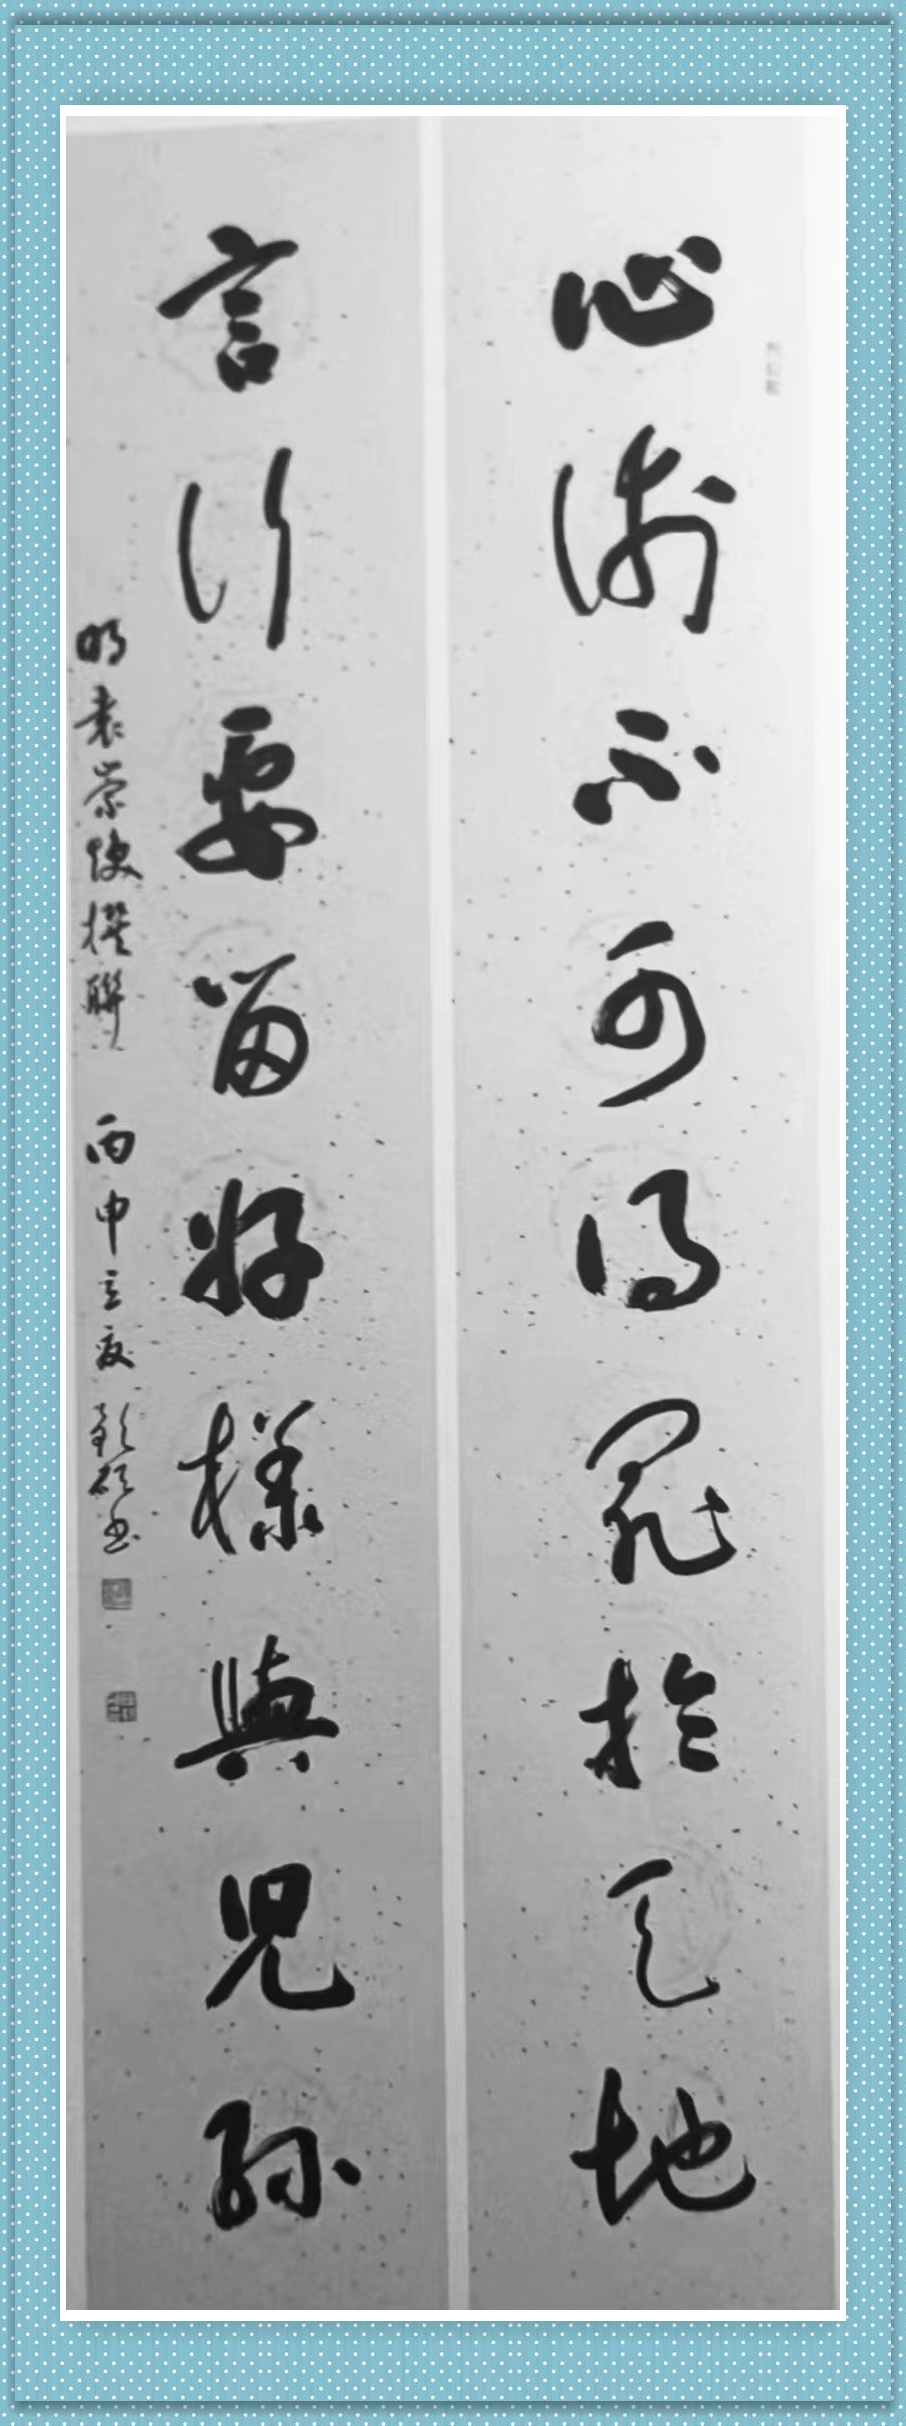 心術不可得罪於天地
言行要留好樣與兒孫
明袁崇焕撰聯 丙申立夏 彭砍书